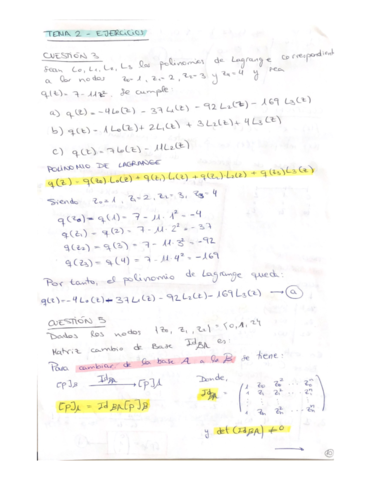 TEMA 2 - EJERCICIOS
CUESTIÓN 3
Sean L0, L1, L2, L3 los polinomios de Lagrange correspondient
a los nodos z0=1, z1=2, z2=3 y z3=4 y sea
q(z)=7-11z². Se cumple:
a) q(z)=-4L0(z)-37L1(z)-92L2(z)-169L3(z)
b) q(z)=1L0(z)+2L1(z)+3L2(z)+4L3(z)
c) q(z)=7L0(z)-11L2(z)
POLINOMIO DE LAGRANGE
q(z)=q(z0)L0(z)+q(z1)L1(z)+q(z2)L2(z)+q(z3)L3(z)
Siendo z0=1, z1=2, z2=3, z3=4
q(z0)=q(1)=7-11·1²=-4
q(z1)=q(2)=7-11·2²=-37
q(z2)=q(3)=7-11·3²=-92
q(z3)=q(4)=7-11·4²=-169
Por tanto, el polinomio de Lagrange queda:
q(z)=-4L0(z)-37L1(z)-92L2(z)-169L3(z) → a
CUESTIÓN 5
Dados los nodos (z0, z1, z2) = {0,1,2}
Matriz cambio de Base Id es:
Para cambiar de la base A a la B se tiene:
Donde,
[p]B Id [p]A
[p]A = IdBA[p]B
Id = (1 z0 z0² ... z0ⁿ
1 z1 z1² ... z1ⁿ
1 zn zn² ... znⁿ)
y det(IdBA) ≠ 0